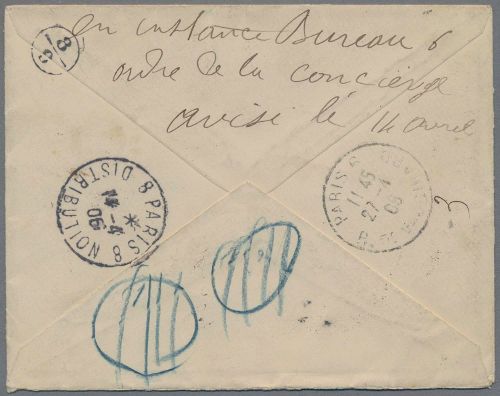 en instance Bureau 6
ordre de la concierge
avisé le 14 avril
8
3
PARIS 8 DISTRIBUTION
8
*
14
4
06
PARIS 8
11 45
27 -4
06
3